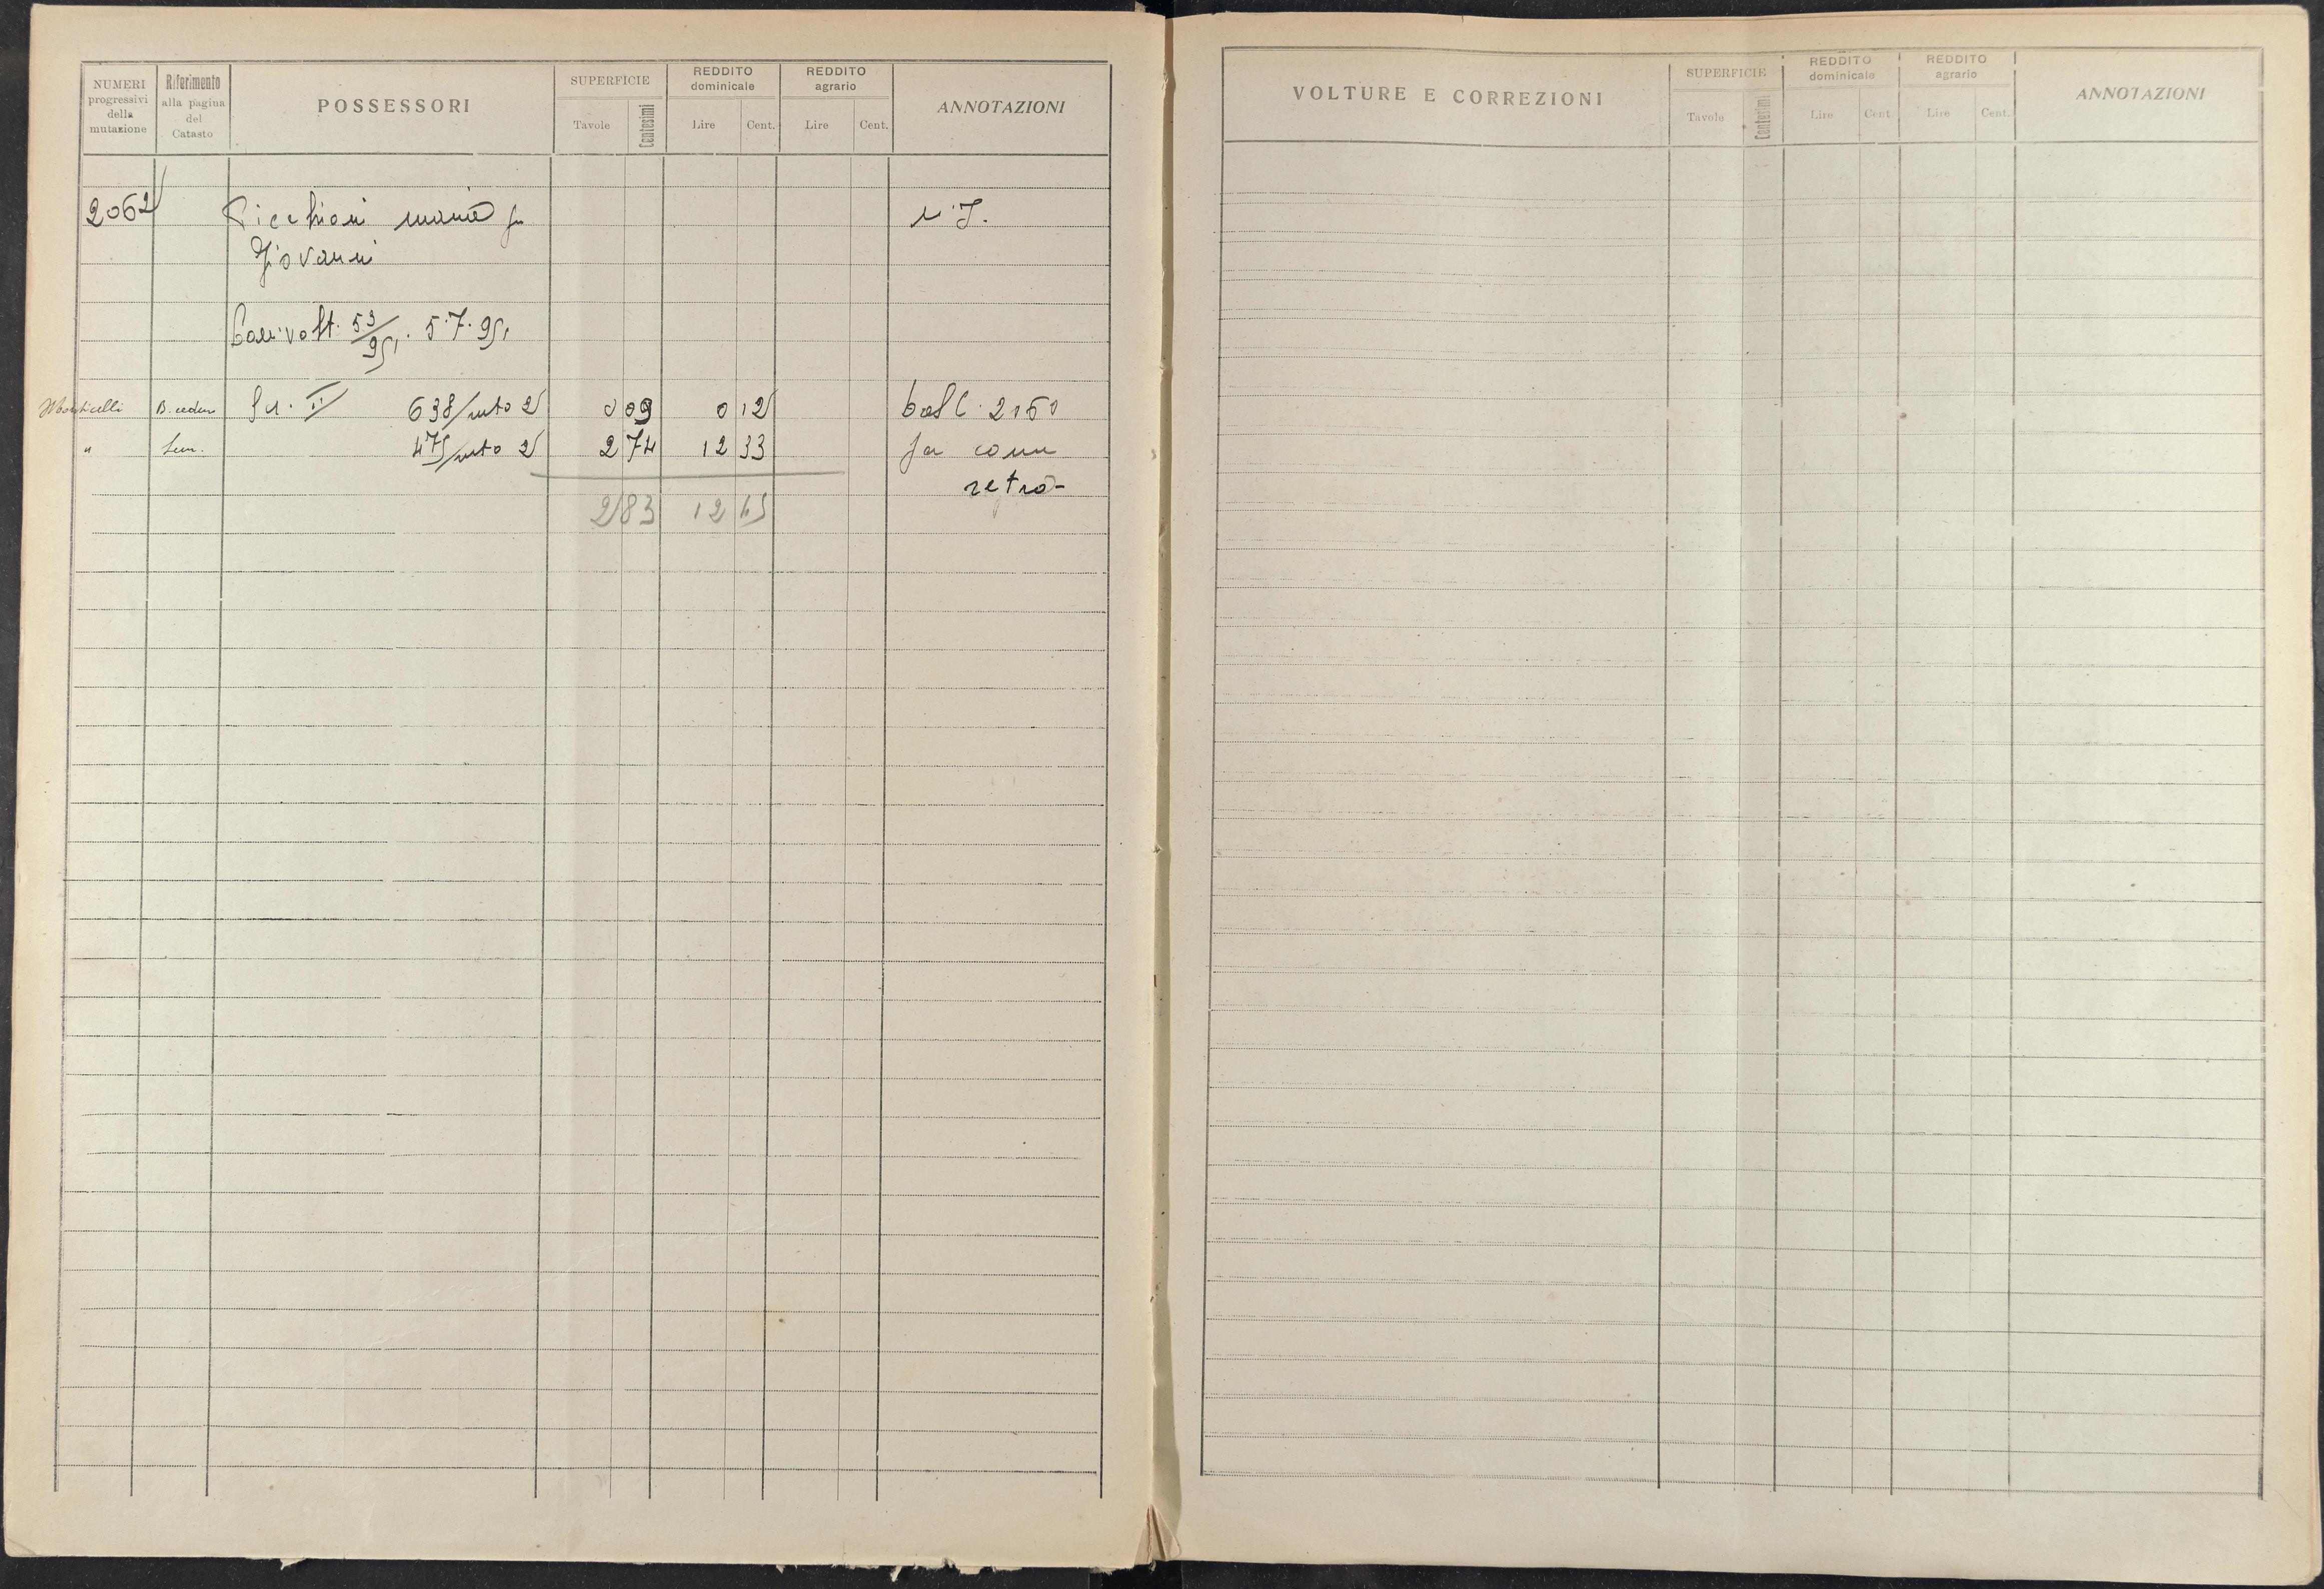 NUMERI progressivi della mutazione
Riferimento alla pagina del Catasto
POSSESSORI
SUPERFICIE
Tavole Centesimi
REDDITO dominicale
Lire Cent.
REDDITO agrario
Lire Cent.
ANNOTAZIONI
2062 Picchioni maria fu
Giovanni
volt. 53/951. 5.7.951
Monticelli B. cedui 638/ 2 0 09 0 12 2150
" Sem. 475/ 2 2 74 12 33 fu come
retro-
2 83 12 45
VOLTURE E CORREZIONI
SUPERFICIE
Tavole Centesimi
REDDITO dominicale
Lire Cent
REDDITO agrario
Lire Cent.
ANNOTAZIONI